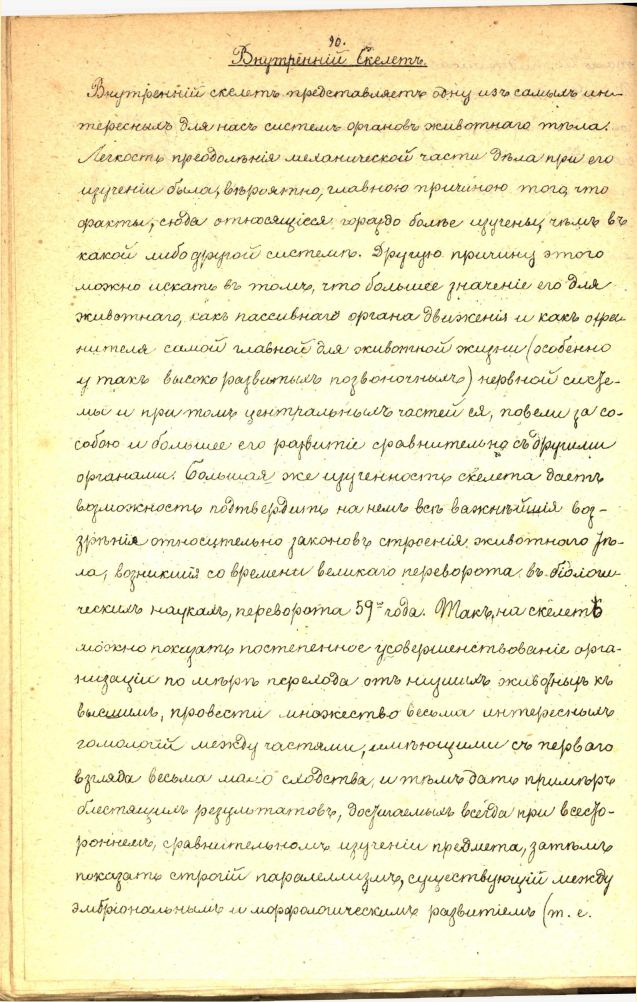 90.
Внутренній Скелетъ.
Внутренній скелетъ представляетъ одну изъ самыхъ ин-
тересныхъ для насъ системъ органовъ животнаго тѣла.
Легкость преодолѣнія механической части дѣла при его
изученіи была, вѣроятно, главною причиною того, что
факты, сюда относящіеся гораздо болѣе изучены, чѣмъ въ
какой либо другой системѣ. Другую причину этого
можно искать въ томъ, что большее значеніе его для
животнаго, какъ пассивнаго органа движенія и какъ охра-
нителя самой главной для животной жизни (особенно
у такъ высоко развитыхъ позвоночныхъ) нервной систе-
мы и притомъ центральныхъ частей ея, повели за со-
собою и большее его развитіе сравнительно съ другими
органами. Большая же изученность скелета даетъ
возможность подтвердить на немъ всѣ важнѣйшія воз-
зрѣнія относительно законовъ строенія животнаго тѣ-
ла, возникшія со времени великаго переворота въ біологи-
ческихъ наукахъ, переворота 59го года. Такъ, на скелетѣ
можно показать постепенное усовершенствованіе орга-
низаціи по мѣрѣ перехода отъ низшихъ животныхъ къ
высшимъ, провести множество весьма интересныхъ
гомологій между частями, имѣющими съ перваго
взгляда весьма мало сходства, и тѣмъ дать примѣръ
блестящихъ результатовъ, достигаемыхъ всегда при всесто-
роннемъ, сравнительномъ изученіи предмета, затѣмъ
показать строгій паралеллизмъ, существующій между
эмбріональнымъ и морфологическимъ развитіемъ (т. е.